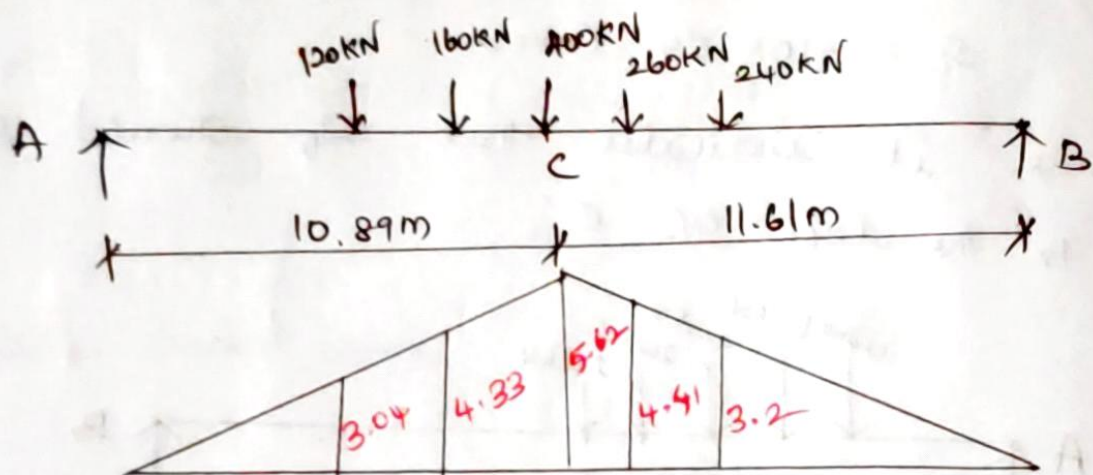 120KN 160KN 400KN
260KN 240KN
A B
C
10.89m 11.61m
3.04 4.33 5.62 4.41 3.2